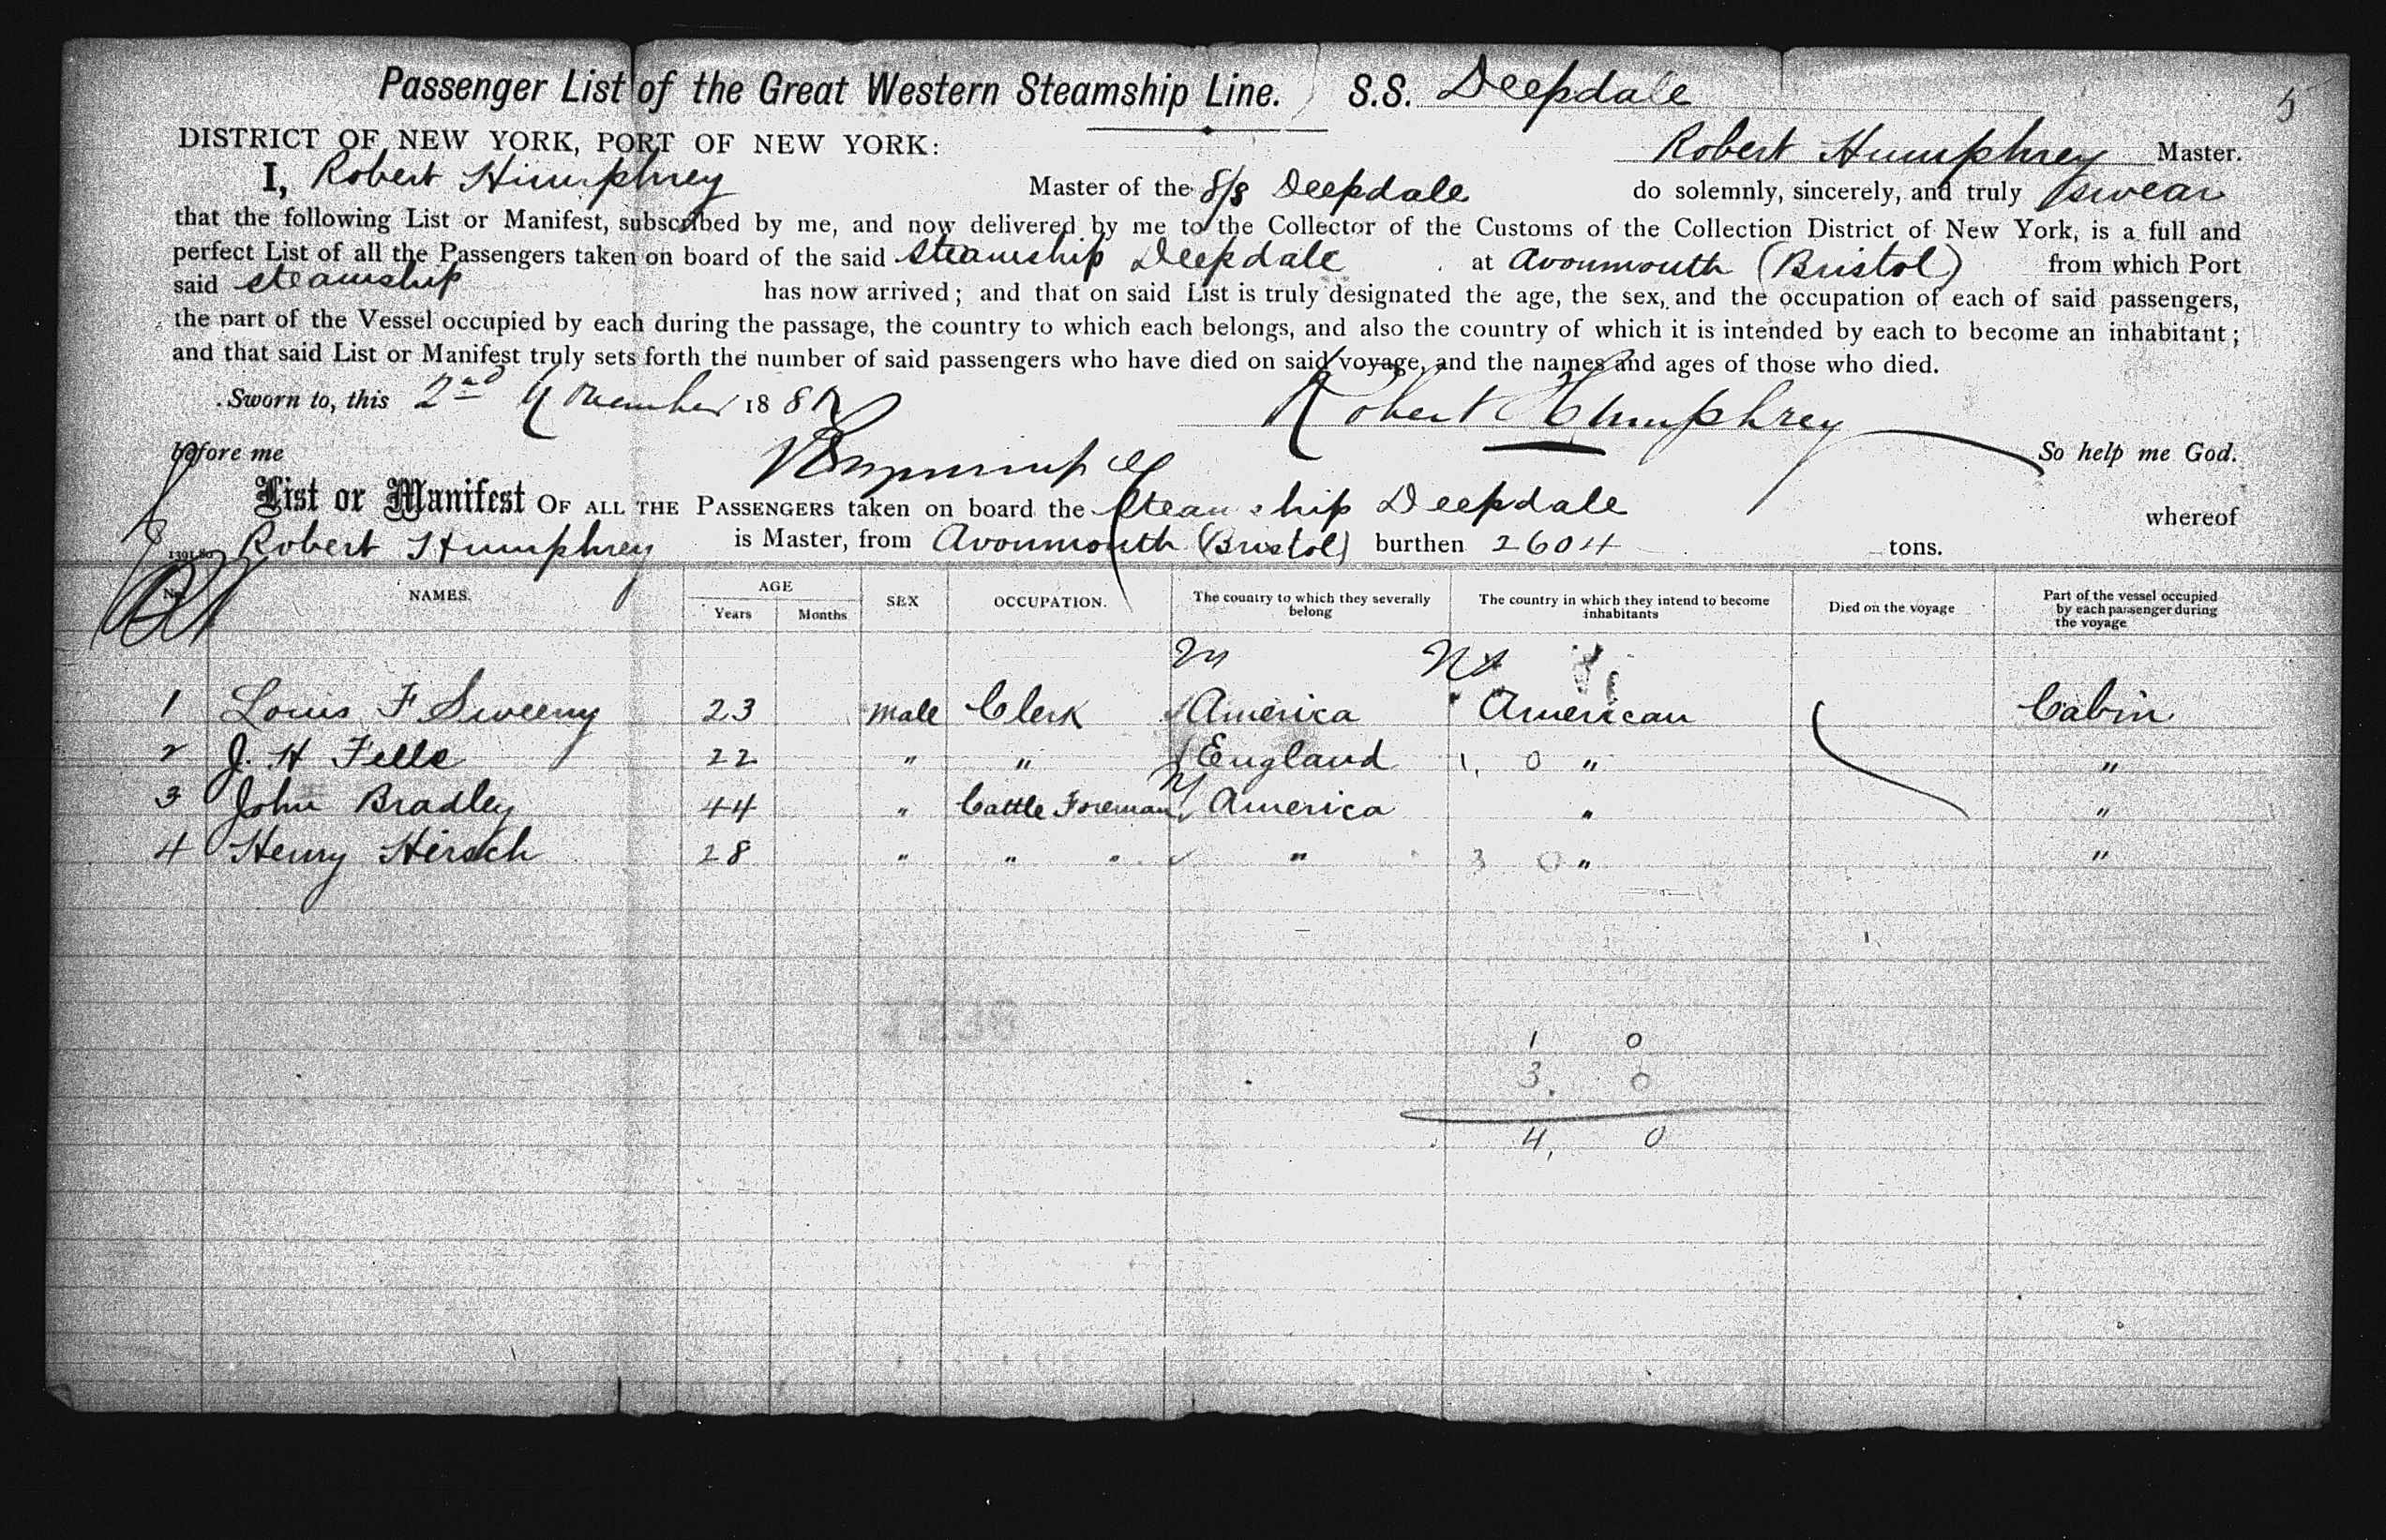 Passenger List of the Great Western Steamship Line. S.S. Deepdale
5
DISTRICT OF NEW YORK, PORT OF NEW YORK:
Robert Humphrey Master.
I, Robert Humphrey Master of the S/S Deepdale do solemnly, sincerely, and truly swear
that the following List or Manifest, subscribed by me, and now delivered by me to the Collector of the Customs of the Collection District of New York, is a full and
perfect List of all the Passengers taken on board of the said Steamship Deepdale at Avonmouth (Bristol) from which Port
said steamship has now arrived; and that on said List is truly designated the age, the sex, and the occupation of each of said passengers,
the part of the Vessel occupied by each during the passage, the country to which each belongs, and also the country of which it is intended by each to become an inhabitant;
and that said List or Manifest truly sets forth the number of said passengers who have died on said voyage, and the names and ages of those who died.
Sworn to, this 2nd November 188
Robert Humphrey
before me So help me God.
List or Manifest OF ALL THE PASSENGERS taken on board the Steamship Deepdale whereof
Robert Humphrey is Master, from Avonmouth (Bristol) burthen 2604 tons.
No. NAMES. AGE Years Months SEX OCCUPATION. The country to which they severally belong The country in which they intend to become inhabitants Died on the voyage Part of the vessel occupied by each passenger during the voyage
1 Louis F Sweeny 23 Male Clerk America American Cabin
2 J. H Fells 22 " " England 1, 0 " "
3 John Bradley 44 " Cattle Foreman America " "
4 Henry Hirsch 28 " " " " 3 0 " "
1 0
3. 0
4, 0